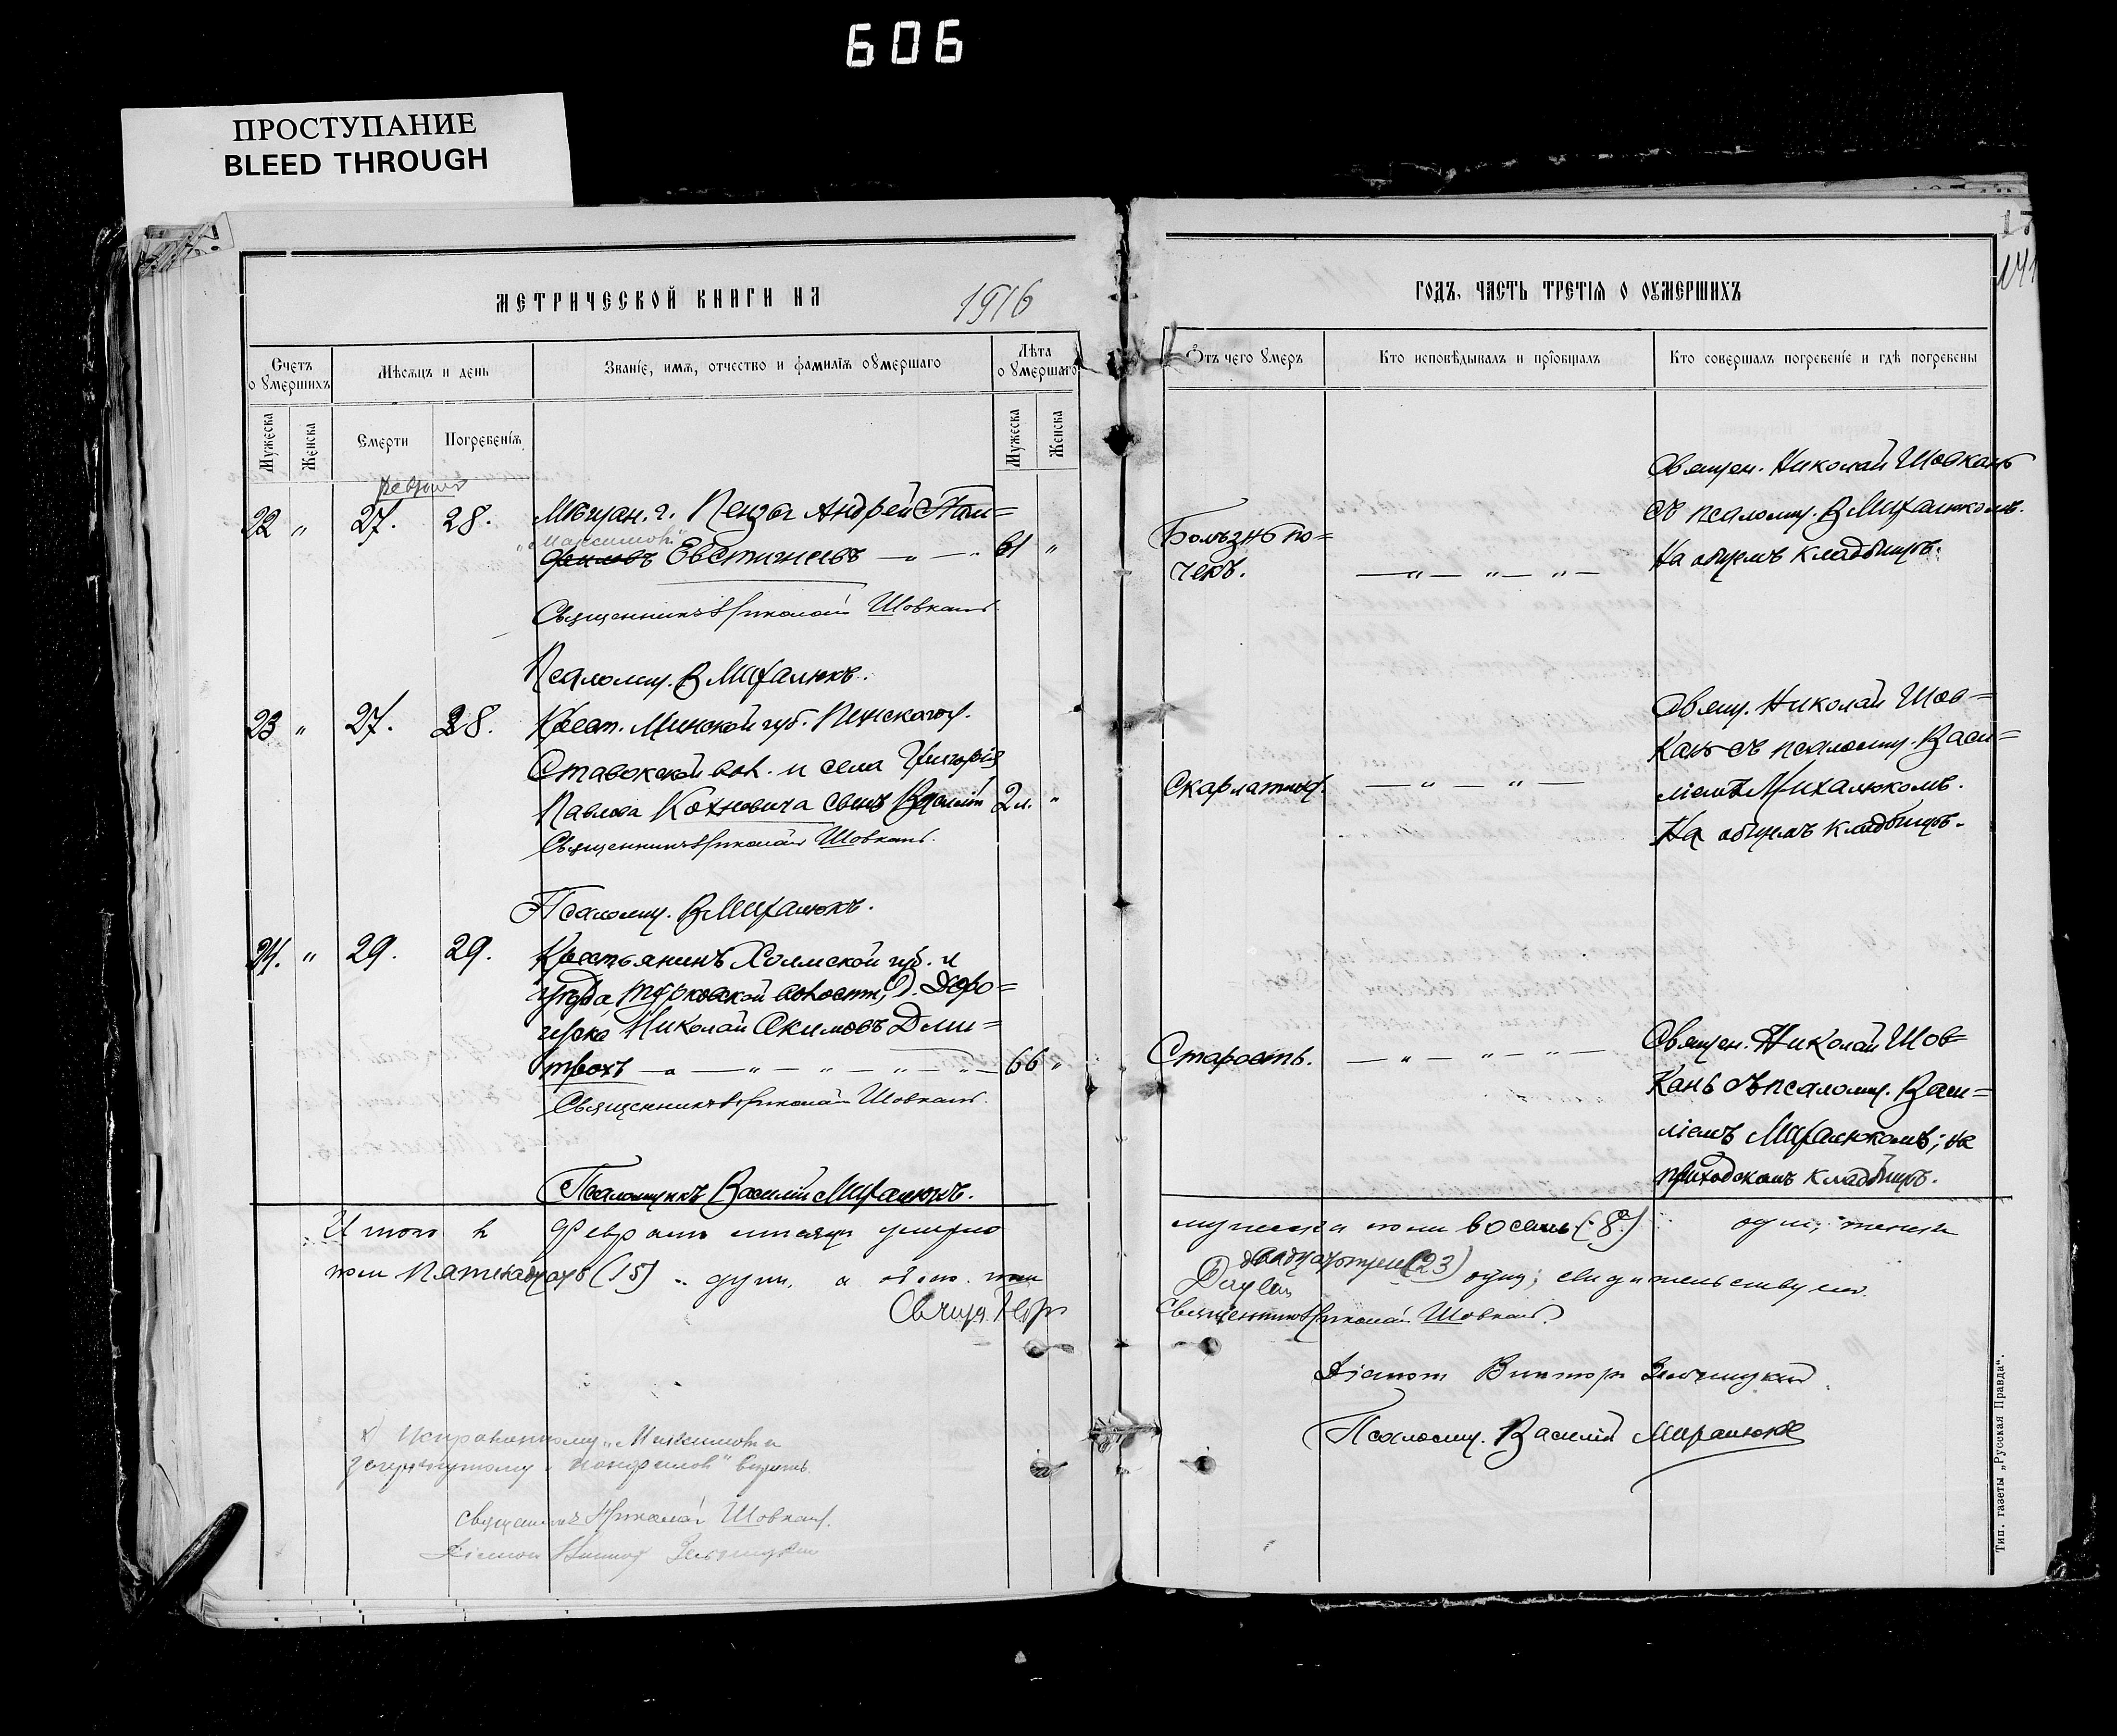 606
ПРОСТУПАНИЕ
BLEED THROUGH
МЕТРИЧЕСКОЙ КНИГИ НА 1916
Счетъ о умершихъ
Мѣсяцъ и день
Званіе, имя, отчество и фамилія оумершаго
Лѣта о умершаго
Мужеска
Женска
Смерти
Погребенія
Мужеска
Женска
22 " 27. 28. Мѣщан. г. Пензы Андрей Пан=
"Максимовъ"
филовъ Евстигнѣевъ — " — " 61 "
Священникъ Николай Шовкань
Псаломщ. В Михалюкъ.
23 " 27. 28. Крест. Минской губ. Пинскаго у.
Ставокской вол. и села Григорія
Павлова Кохновича сынъ 2 л. "
Священникъ Николай Шовкань.
Псаломщ. В Михалюкъ.
24. " 29. 29. Крестьянинъ Холмской губ. и
уѣзда Турковской волости, д.
Николай Акимовъ Дми=
трохъ — " — " — " — " — " — 66 "
Священникъ Николай Шовкань.
Псаломщикъ Василій Михалюкъ.
Итого въ Февралѣ мѣсяцѣ умерло
пола пятнадцать (15) душъ, а обоего пола
х) Исправленному "Максимовъ и
зачеркнутому "Панфиловъ" вѣрить.
священникъ Николай Шовкань.
17
141
ГОДЪ, ЧАСТЬ ТРЕТІЯ О ОУМЕРШИХЪ
Отъ чего умеръ
Кто исповѣдывалъ и пріобщалъ
Кто совершалъ погребеніе и гдѣ погребены
Священ. Николай Шовкань
съ псаломщ. В Михалюкомъ.
На общемъ кладбищѣ.
Болѣзнь по=
чекъ. — " — " — " —
Свящ. Николай Шов=
кань съ псаломщ. Васи=
ліемъ Михалюкомъ.
На общемъ кладбищѣ.
Скарлатина. — " — " —
Священ. Николай Шов=
кань съ псаломщ. Васи=
ліемъ Михалюкомъ; на
приходскомъ кладбищѣ.
Старость. — " — " — " —
мужеска пола восемь (8) душ, женска
двадцать три (23) душ; свидѣтельствуемъ.
Священникъ Николай Шовкань.
Діаконъ Викторъ
Псаломщ. Василій Михалюкъ
Тип. газеты „Русская Правда".